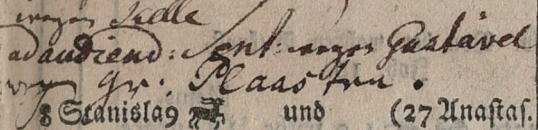 wegen Kelle
ad audiend: Sent: wegen Gustävel
wegen Gr: Plaasten.
8 Stanislaꝰ und (27 Anastas.